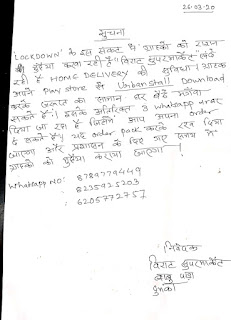 26-03-20
सूचना
'LOCKDOWN' के इस संकट में ग्राहकों को राशन
की सुविधा करा रही है "विराट सुपरमार्केट"
रही है HOME DELIVERY की सुविधा। ग्राहक
अपने Play store से Urbanstall Download
करके जरूरत का सामान घर बैठे मंगवा
सकते हैं। इसके अतिरिक्त 3 whatsapp नम्बर
दिया जा रहा है जिसमें आप अपना order
दे सकते हैं। यहाँ order pack करके रख दिया
जाएगा और प्रशासन के दिए गए समय में
ग्राहकों को मुहैया कराया जाएगा।
Whatsapp NO: 8789279449
8235925203
6205772757
निवेदक
विराट सुपरमार्केट
दुमका